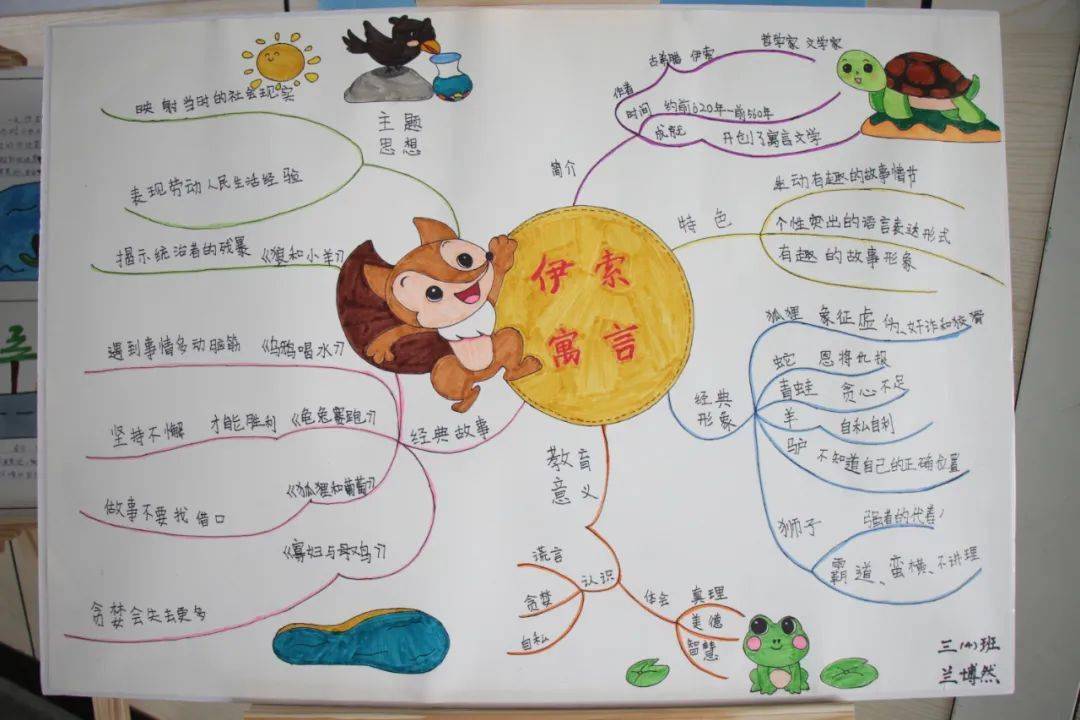 伊索
寓言
简介
作者
古希腊 伊索
哲学家 文学家
时间 约前620年—前560年
成就 开创了寓言文学
特色
生动有趣的故事情节
个性突出的语言表达形式
有趣的故事形象
经典
形象
狐狸 象征虚伪、奸诈和狡猾
蛇 恩将仇报
青蛙 贪心不足
羊 自私自利
驴 不知道自己的正确位置
狮子 强者的代表
霸道、蛮横、不讲理
教育
意义
认识
谎言
贪婪
自私
体会
真理
美德
智慧
经典故事
遇到事情多动脑筋 《乌鸦喝水》
坚持不懈 才能胜利 《龟兔赛跑》
做事不要找借口 《狐狸和葡萄》
《寡妇与母鸡》
贪婪会失去更多
主题
思想
映射当时的社会现实
表现劳动人民生活经验
揭示统治者的残暴 《狼和小羊》
兰博然